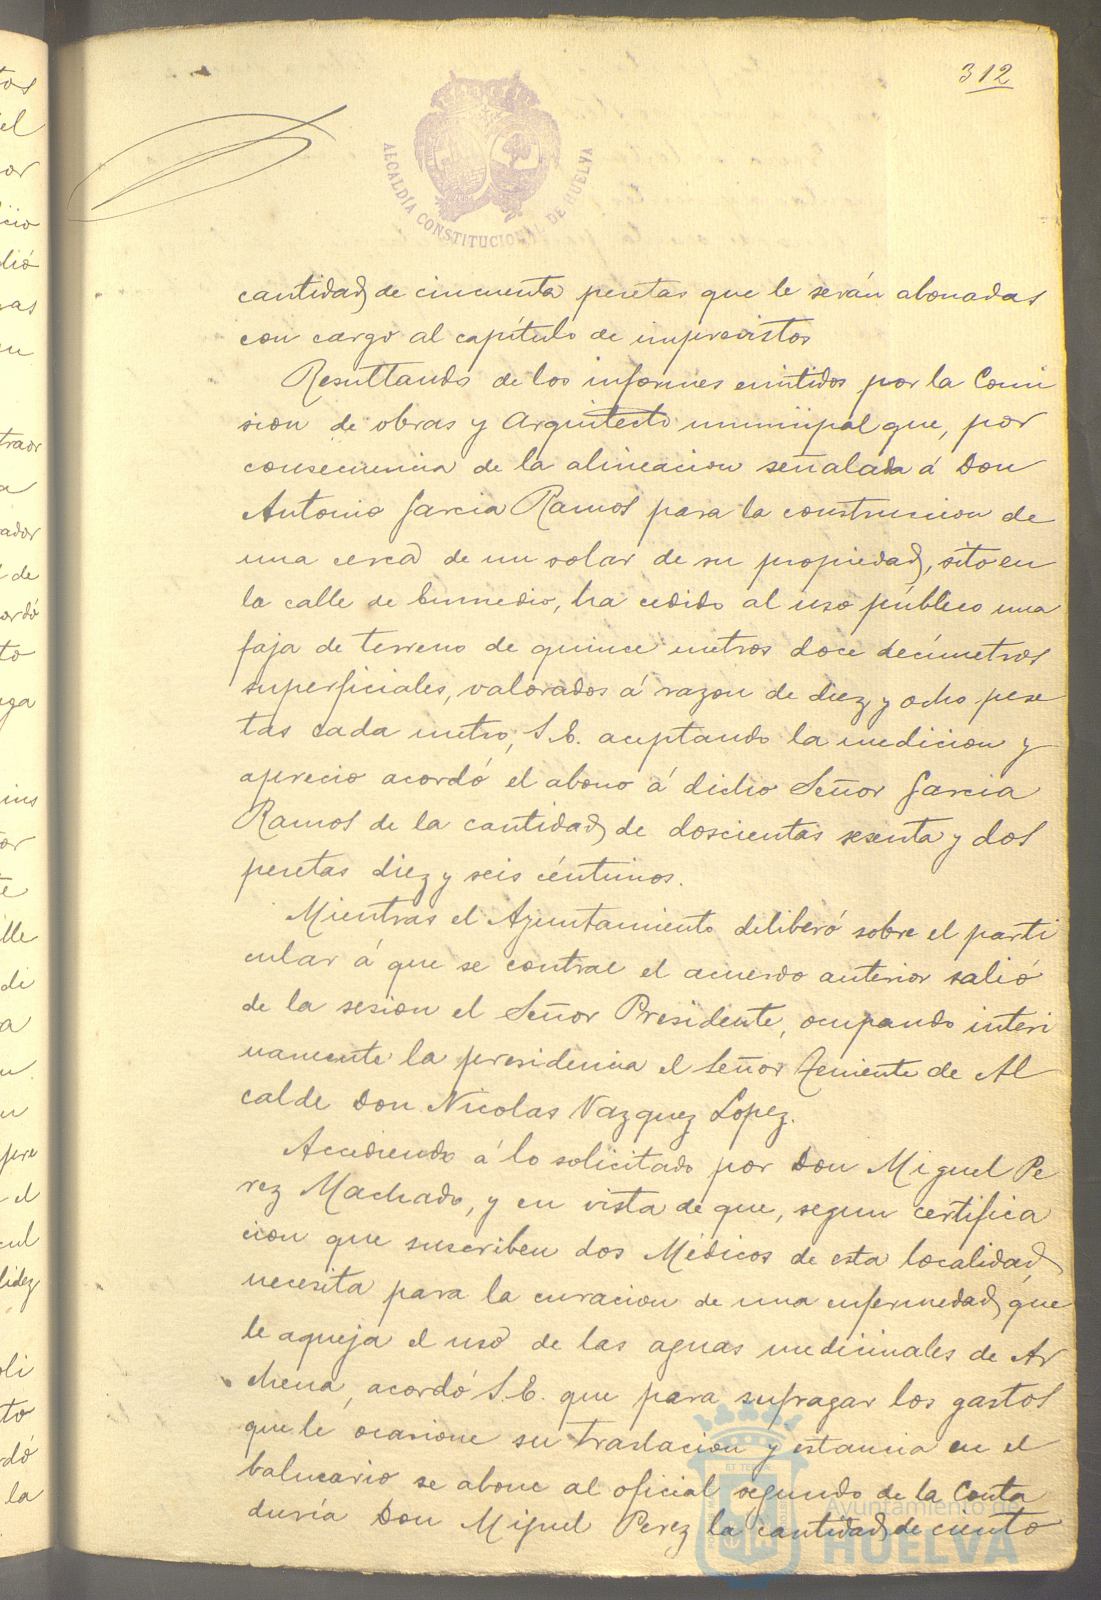 312
ALCALDÍA CONSTITUCIONAL DE HUELVA
cantidad de cincuenta pesetas que le serán abonadas
con cargo al capítulo de imprevistos
Resultando de los informes emitidos por la Comi
sion de obras y Arquitecto municipal que, por
consecuencia de la alineacion señalada á Don
Antonio Garcia Ramos para la construccion de
una cerca de un solar de su propiedad, sito en
la calle de Enmedio, ha cedido al uso público una
faja de terreno de quince metros doce decímetros
superficiales, valorados á razon de diez y ocho pese
tas cada metro, S. E. aceptando la medicion y
aprecio acordó el abono á dicho Señor Garcia
Ramos de la cantidad de doscientas sesenta y dos
pesetas diez y seis céntimos.
Mientras el Ayuntamiento deliberó sobre el parti
cular á que se contrae el acuerdo anterior salió
de la sesion el Señor Presidente, ocupando interi
namente la presidencia el Señor Teniente de Al
calde Don Nicolas Vazquez Lopez.
Accediendo á lo solicitado por Don Miguel Pe
rez Machado, y en vista de que, segun certifica
cion que suscriben dos Médicos de esta localidad
necesita para la curacion de una enfermedad que
le aqueja el uso de las aguas medicinales de Ar
chena, acordó S. E. que para sufragar los gastos
que le ocasione su traslacion y estancia en el
balneario se abone al oficial segundo de la Conta
duría Don Miguel Perez la cantidad de ciento
Ayuntamiento de
HUELVA